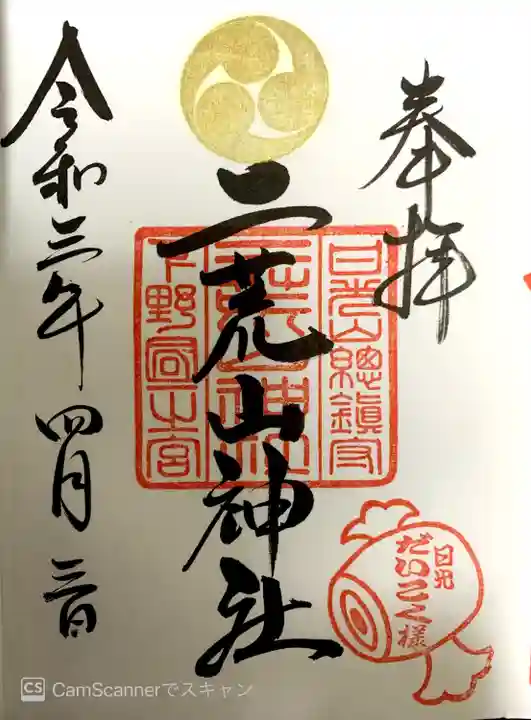 奉拝
二荒山神社
日光山總鎮守
二荒山神社
下野國一之宮
令和三年四月三日
日光
だいこく様
CS CamScannerでスキャン